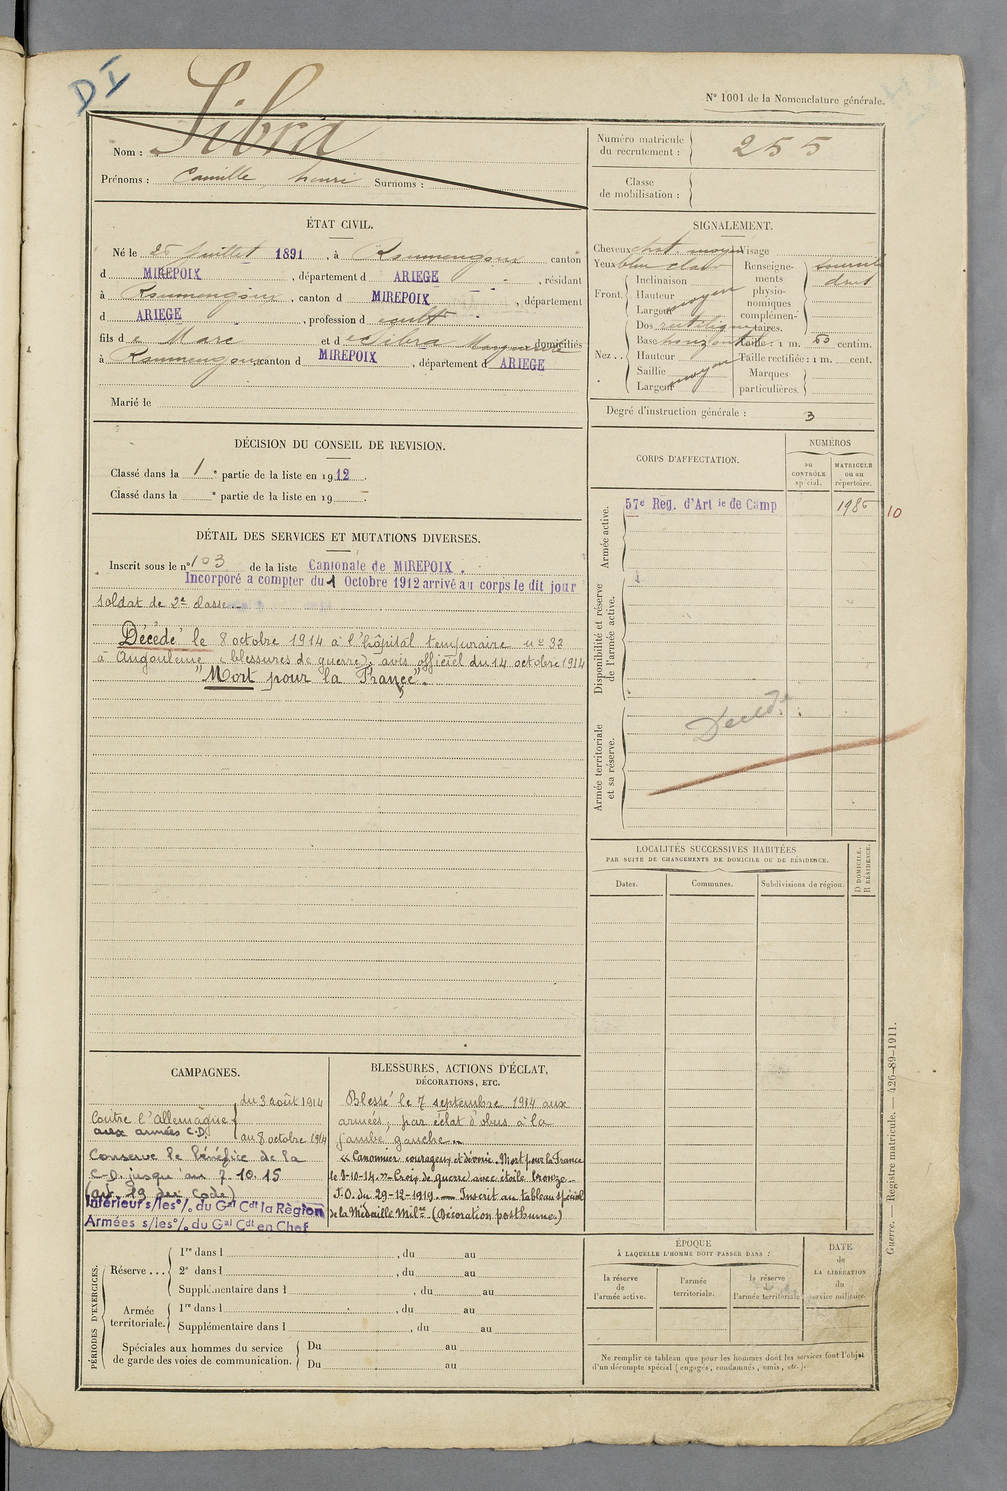 D I
N° 1001 de la Nomenclature générale.
Nom : Sibra
Prénoms : Camille, henri Surnoms :
Numéro matricule du recrutement : 255
Classe de mobilisation :
ÉTAT CIVIL.
Né le 25 juillet 1891, à Roumengoux canton
d MIREPOIX, département d ARIEGE, résidant
à Roumengoux, canton d MIREPOIX, département
d ARIEGE, profession d cultr
fils de Marc et d Sibra Marguerite domiciliés
à Roumengoux, canton d MIREPOIX, département d ARIEGE
Marié le
SIGNALEMENT.
Cheveux chat. moyen Visage
Yeux bleu clair
Front. Inclinaison
Hauteur
Largeur moyen
Nez.. Dos rectiligne
Base horizontale
Hauteur
Saillie
Largeur moyen
Renseignements physionomiques complémentaires. sourcils
drus
Taille : 1 m. 63 centim.
Taille rectifiée : 1 m. cent.
Marques particulières.
Degré d'instruction générale : 3
DÉCISION DU CONSEIL DE REVISION.
Classé dans la 1e partie de la liste en 1912.
Classé dans la e partie de la liste en 19 .
CORPS D'AFFECTATION.
NUMÉROS
DU CONTRÔLE spécial.
MATRICULE ou au répertoire.
Armée active.
57e Reg. d'Artie de Camp 1986 10
Disponibilité et réserve de l'armée active.
Armée territoriale et sa réserve.
Décédé
DÉTAIL DES SERVICES ET MUTATIONS DIVERSES.
Inscrit sous le n° 103 de la liste Cantonale de MIREPOIX.
Incorporé à compter du 1 Octobre 1912 arrivé au corps le dit jour
soldat de 2e classe
Décédé le 8 octobre 1914 à l'hôpital temporaire no 33
à Angoulème (blessures de guerre), avis officiel du 14 octobre 1914
"Mort pour la France".
LOCALITÉS SUCCESSIVES HABITÉES
PAR SUITE DE CHANGEMENTS DE DOMICILE OU DE RÉSIDENCE.
Dates.
Communes.
Subdivisions de région.
D DOMICILE.
R RÉSIDENCE.
CAMPAGNES.
du 3 août 1914
Contre l'Allemagne
aux armées C.D.
au 8 octobre 1914
Conserve le bénéfice de la
C-D. jusqu'au 7.10.15
(art. 13 du Code)
Intérieur s/les o/. du Gal Cdt la Région
Armées s/les o/. du Gal Cdt en Chef
BLESSURES, ACTIONS D'ÉCLAT,
DÉCORATIONS, ETC.
Blessé le 7 septembre 1914 aux
armées, par éclat d'obus à la
jambe gauche.
« Canonnier courageux et dévoué. Mort pour la France
le 8-10-14. » Croix de guerre avec étoile bronze -
J.O. du 29-12-1919. — Inscrit au tableau spécial
de la Médaille Milre (Décoration posthume)
PÉRIODES D'EXERCICES.
Réserve ...
1re dans l , du au
2e dans l , du au
Supplémentaire dans l , du au
Armée territoriale.
1re dans l , du au
Supplémentaire dans l , du au
Spéciales aux hommes du service
de garde des voies de communication.
Du au
Du au
ÉPOQUE
À LAQUELLE L'HOMME DOIT PASSER DANS :
la réserve de l'armée active.
l'armée territoriale.
la réserve de l'armée territoriale
DATE
de
LA LIBÉRATION
du
service militaire.
Ne remplir ce tableau que pour les hommes dont les services font l'objet
d'un décompte spécial (engagés, condamnés, omis, etc.).
Guerre. — Registre matricule. — 426-89-1911.